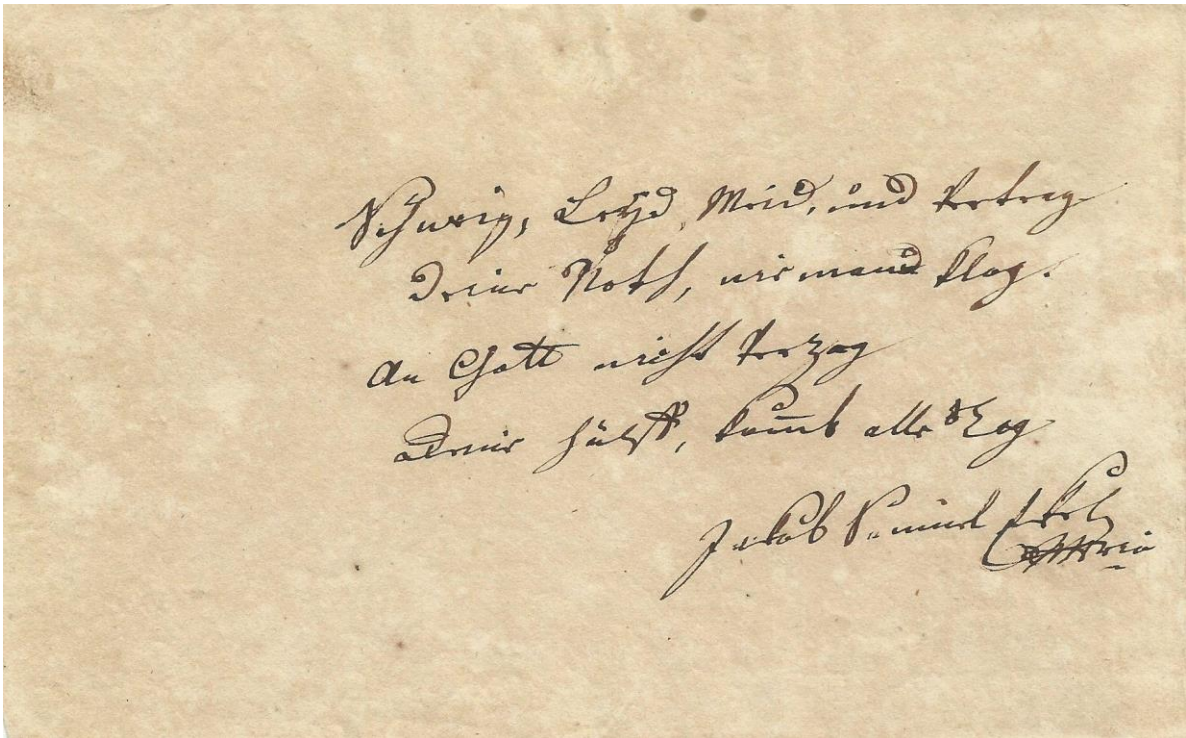 Schweig, Leyd, Meid, und Vertrag
Deine Noth, niemand klag.
An Gott nicht Verzag
Deine hülff, kommt alle Tag
Jakob Samuel